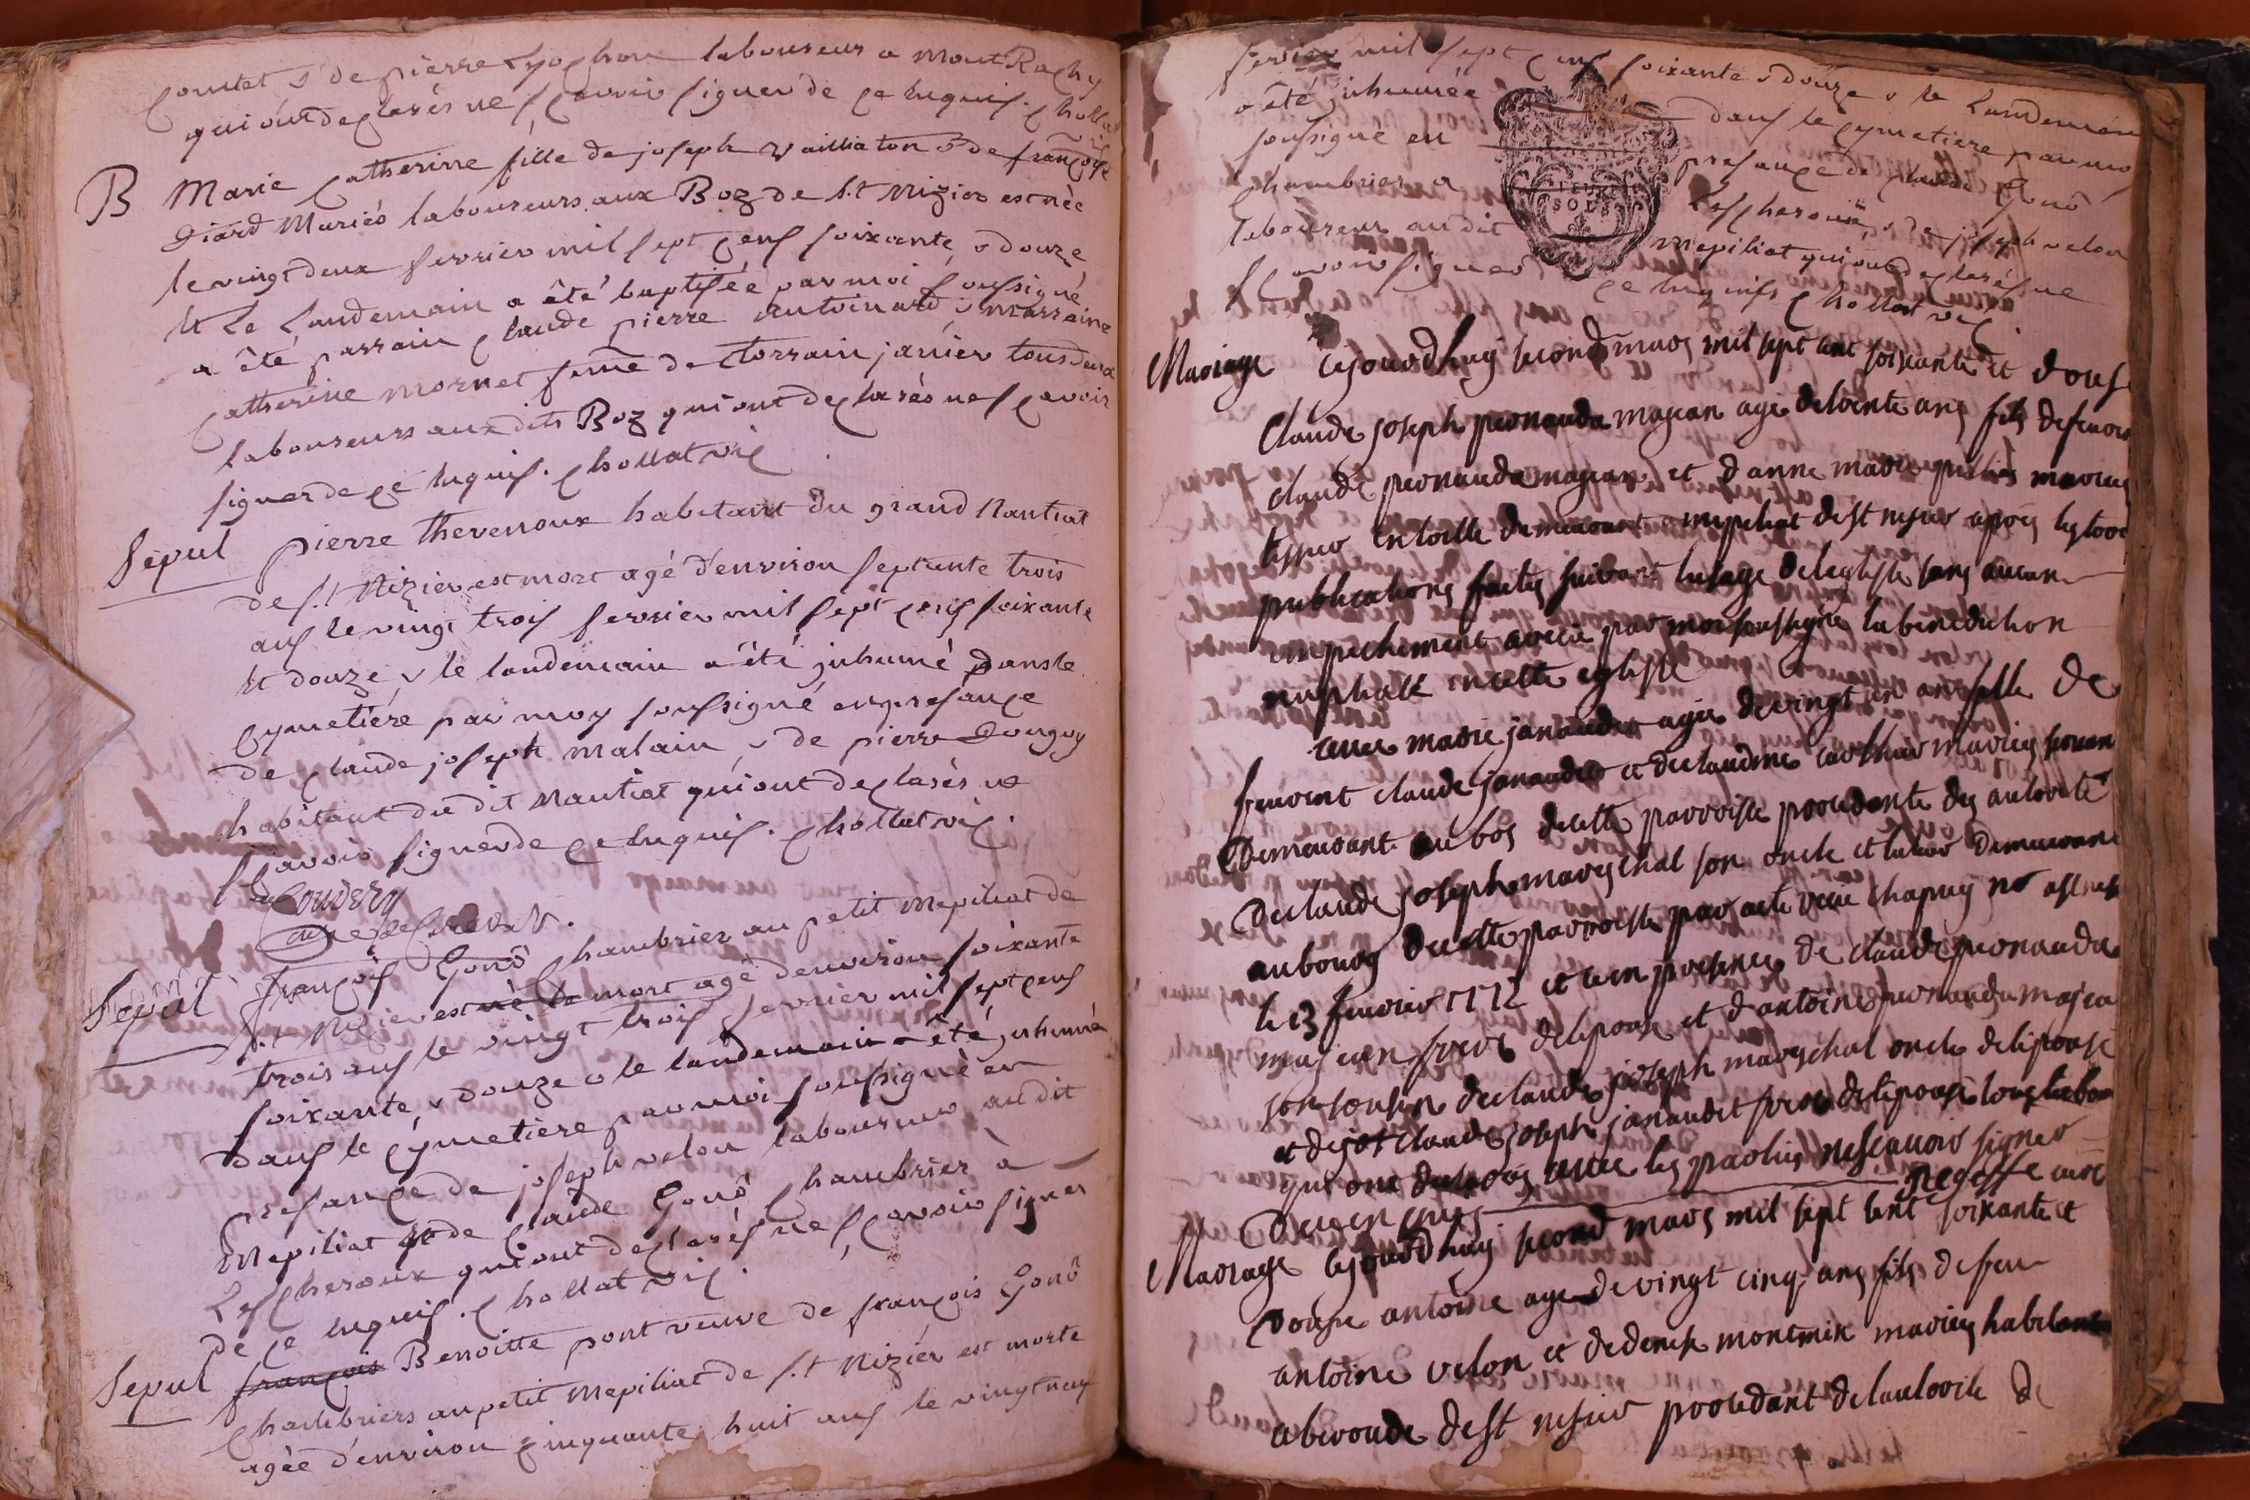 Comtet & de pierre Lyochon laboureur a Mont Rachy
qui ont declarés ne scavoir signer de ce enquis. Chollat
vic
B Marie Catherine fille de joseph vailliaton & de françoise
diard Mariés laboureurs aux Boz de s.t Nizier est née
le vingt deux fevrier mil sept cens soixante & douze
et Le Landemain a êté baptisée par moi soussigné
a êté parrain claude pierre antoinard & marraine
catherine mornet femme de Torrain janier tous deux
laboureurs aux dits Boz qui ont declarés ne scavoir
signer de ce enquis. Chollat vic
Sepul pierre thevenoux habitant du grand Nantiat
de s.t Nizier est mort agé d'environ septante trois
ans le vingt trois fevrier mil sept cens soixante
et douze & le landemain a êté inhumé dans le
cymetiére par moy soussigné en presance
de claude joseph malain & de pierre Donguy
habitant du dit Nantiat qui ont declarés ne
scavoir signer de ce enquis. Chollat vic.
Sepul françois Gonô chambrier au petit Mepiliat de
s.t Nizier est né le mort agé denviron soixante
trois ans le vingt trois fevrier mil sept cens
soixante & douze & le landemain a êté inhumé
dans le cymetiére par moi soussigné en
presance de joseph velon laboureur au dit
Mepiliat et de Claude Gonô chambrier à
Lescheroux qui ont declarés ne scavoir signer
de ce enquis. Chollat vic.
Sepul françois Benoitte pont veuve de françois Gonô
chambriers au petit Mepiliat de s.t Nizier est morte
agée d'environ cinquante huit ans le vingt neuf
fevrier mil sept cens soixante & douze & le Landemain
a êté inhumée dans le cymetiere par moy
soussigné en presance de claude Gonô
chambrier a Lescheroux & de joseph velon
laboureur au dit Mepiliat qui ont declarés ne
scavoir signer de ce enquis Chollat vic.
SOLS
Mariage cejourdhuy second mars mil sept cent soixante et douse
Claude joseph peonauda majean agé de trente ans fils de feuvent
claude peonauda majean et d anne marie mariés
demeurant a mepeliat de st nisier apres les trois
publications faites suivant lusage de leglise sans aucun
empechement a receu par moi soussigné la benediction
nuptiale en cette eglise
avec marie janaudet agée de vingt un ans fille de
feuvent claude janaudet et de claudine mariés
demeurant au bos de cette parroisse procedante de lautorité
de claude joseph marechal son oncle et tuteur demeurant
au bourg de cette parroisse par acte receu chapuy no
le 23 fevrier 1772 et en presence de claude peonauda
majean frere de lepoux et d antoine peonauda majean
son cousin de claude joseph marechal oncle de lepouse
et de claude joseph janaudet frere de lepouse tous
qui ont avec les parties ne scavoir signer
de ce enquis curé
Mariage cejourdhuy second mars mil sept cent soixante et
douse antoine agé de vingt cinq ans fils de feu
antoine velon et de denise montmix mariés habitant
aberoude de st nisier procedant de lautorité de